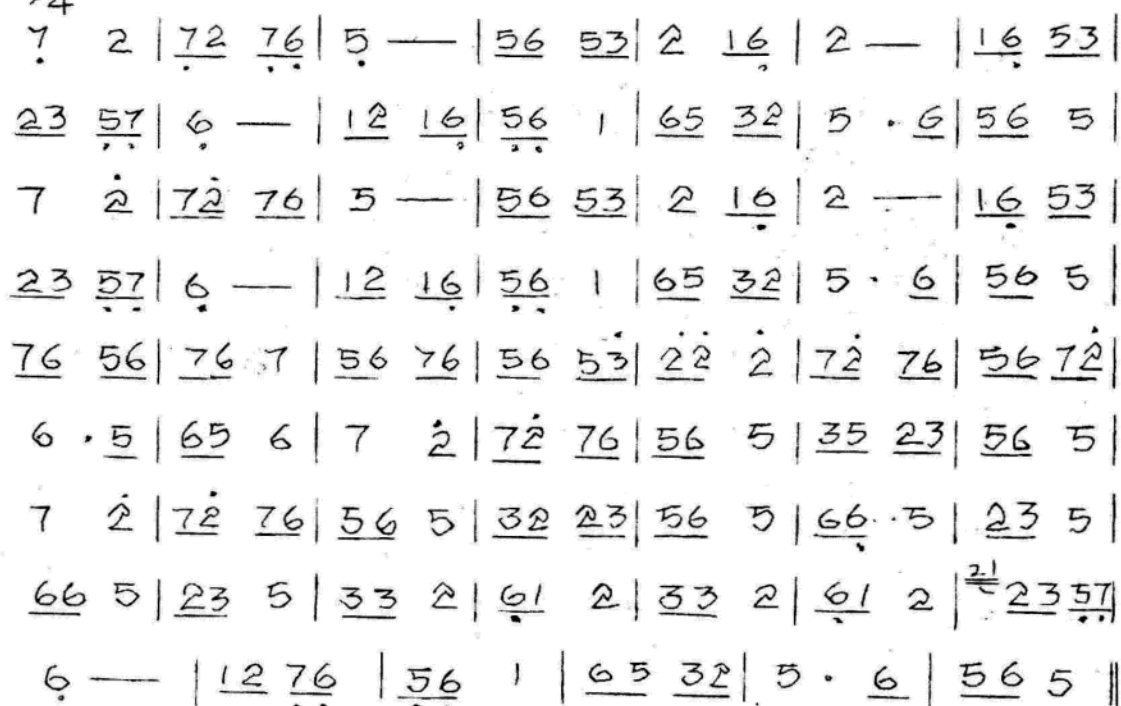 4
7̣ 2 | 7̣2 7̣6̣ | 5̣ — | 56 53 | 2 16̣ | 2 — | 16̣ 53 |
23 5̣7̣ | 6̣ — | 12 16̣ | 5̣6̣ 1 | 65 32 | 5 · 6 | 56 5 |
7 2̇ | 72̇ 76 | 5 — | 56 53 | 2 16̣ | 2 — | 16̣ 53 |
23 5̣7̣ | 6̣ — | 12 16̣ | 5̣6̣ 1 | 65 32 | 5 · 6 | 56 5 |
76 56 | 76 7 | 56 76 | 56 53̇ | 2̇2̇ 2̇ | 72̇ 76 | 56 72̇ |
6 · 5 | 65 6 | 7 2̇ | 72̇ 76 | 56 5 | 35 23 | 56 5 |
7 2̇ | 72̇ 76 | 56 5 | 32 23 | 56 5 | 66̣ 5 | 23 5 |
66 5 | 23 5 | 33 2 | 6̣1 2 | 33 2 | 6̣1 2 | 21 23 5̣7̣ |
6̣ — | 12 7̣6̣ | 5̣6̣ 1 | 65 32 | 5 · 6 | 56 5 ‖